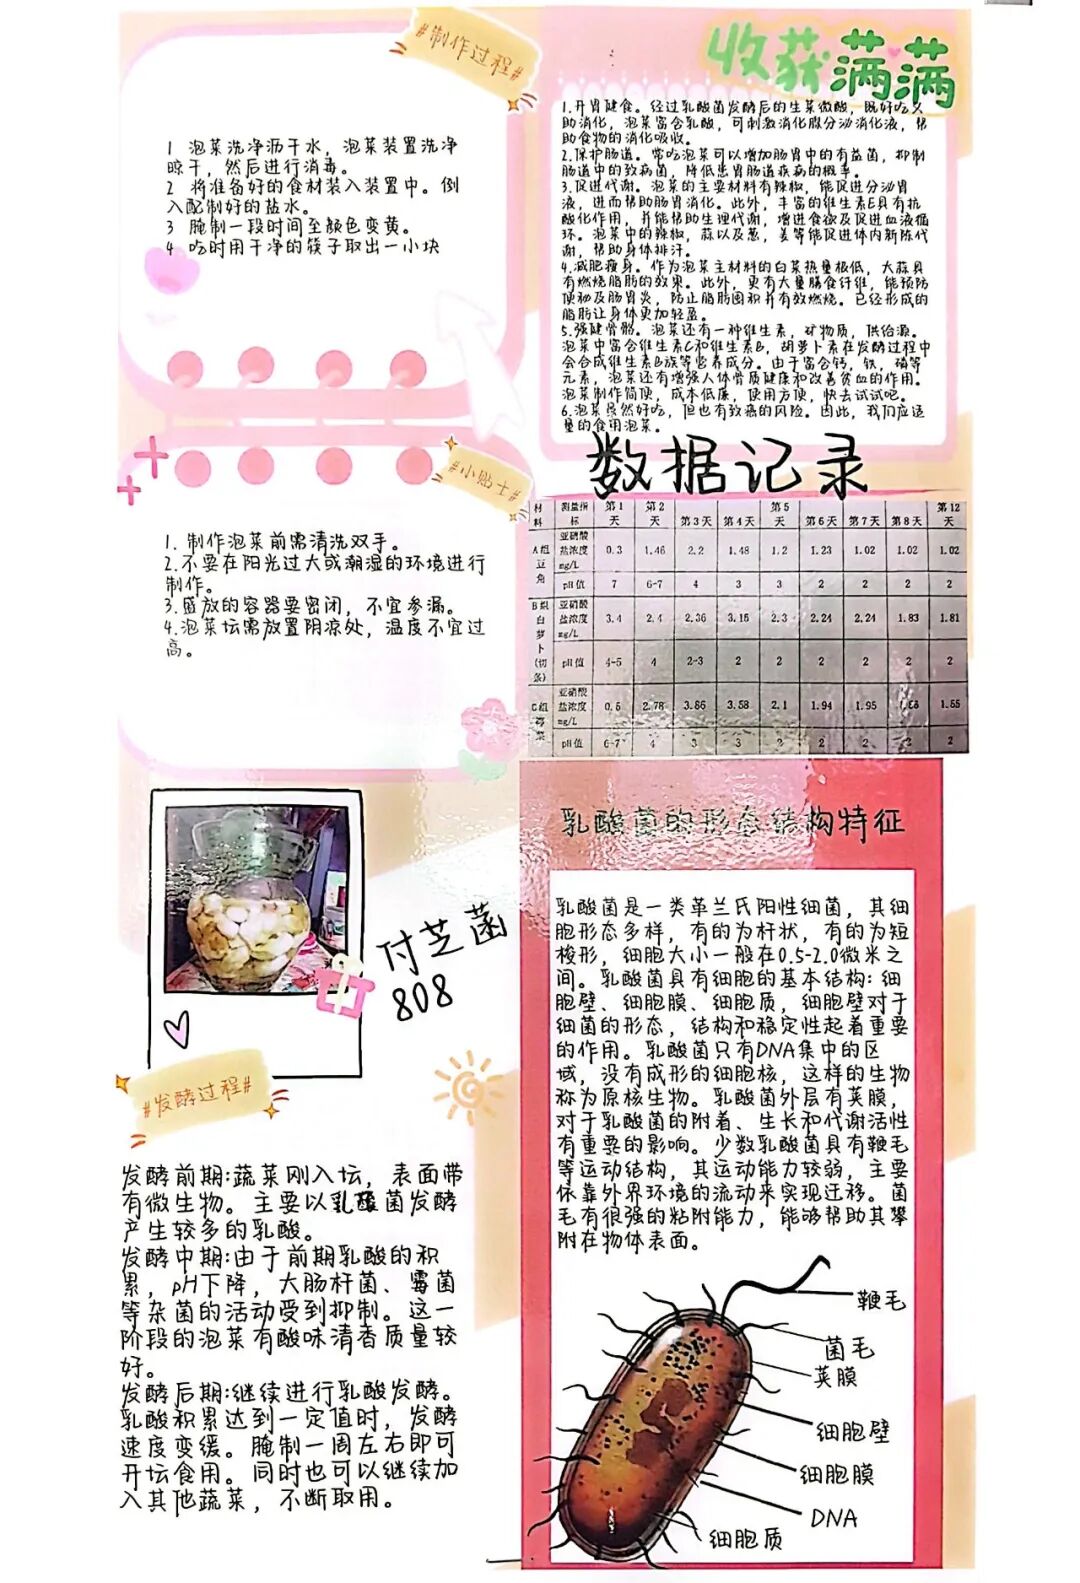 #制作过程#
1 泡菜洗净沥干水，泡菜装置洗净
晾干，然后进行消毒。
2 将准备好的食材装入装置中。倒
入配制好的盐水。
3 腌制一段时间至颜色变黄。
4 吃时用干净的筷子取出一小块
#小贴士#
1. 制作泡菜前需清洗双手。
2.不要在阳光过大或潮湿的环境进行
制作。
3.盛放的容器要密闭，不宜参漏。
4.泡菜坛需放置阴凉处，温度不宜过
高。
付芝菡
808
#发酵过程#
发酵前期:蔬菜刚入坛，表面带
有微生物。主要以乳酸菌发酵
产生较多的乳酸。
发酵中期:由于前期乳酸的积
累，pH下降，大肠杆菌、霉菌
等杂菌的活动受到抑制。这一
阶段的泡菜有酸味清香质量较
好。
发酵后期:继续进行乳酸发酵。
乳酸积累达到一定值时，发酵
速度变缓。腌制一周左右即可
开坛食用。同时也可以继续加
入其他蔬菜，不断取用。
收获满满
1.开胃健食。经过乳酸菌发酵后的生菜微酸，既好吃又
助消化，泡菜富含乳酸，可刺激消化腺分泌消化液，帮
助食物的消化吸收。
2.保护肠道。常吃泡菜可以增加肠胃中的有益菌，抑制
肠道中的致病菌，降低患胃肠道疾病的概率。
3.促进代谢。泡菜的主要材料有辣椒，能促进分泌胃
液，进而帮助肠胃消化。此外，丰富的维生素E具有抗
酸化作用，并能帮助生理代谢，增进食欲及促进血液循
环。泡菜中的辣椒，蒜以及葱，姜等能促进体内新陈代
谢，帮助身体排汗。
4.减肥瘦身。作为泡菜主材料的白菜热量极低，大蒜具
有燃烧脂肪的效果。此外，更有大量膳食纤维，能预防
便秘及肠胃炎，防止脂肪囤积并有效燃烧。已经形成的
脂肪让身体更加轻盈。
5.强健骨骼。泡菜还有一种维生素，矿物质，供给源。
泡菜中富含维生素C和维生素B，胡萝卜素在发酵过程中
会合成维生素B族等营养成分。由于富含钙，铁，磷等
元素，泡菜还有增强人体骨质健康和改善贫血的作用。
泡菜制作简便，成本低廉，使用方便，快去试试吧。
6.泡菜虽然好吃，但也有致癌的风险。因此，我们应适
量的食用泡菜。
数据记录
材料 测量指标 第1天 第2天 第3天 第4天 第5天 第6天 第7天 第8天 第12天
A组豆角 亚硝酸盐浓度mg/L 0.3 1.46 2.2 1.48 1.2 1.23 1.02 1.02 1.02
pH值 7 6-7 4 3 3 2 2 2 2
B组白萝卜(切条) 亚硝酸盐浓度mg/L 3.4 2.4 2.36 3.15 2.3 2.24 2.24 1.83 1.81
pH值 4-5 4 2-3 2 2 2 2 2 2
C组 菜 亚硝酸盐浓度mg/L 0.5 2.78 3.86 3.58 2.1 1.94 1.95 1.55
pH值 6-7 4 3 3 2 2 2 2 2
乳酸菌的形态结构特征
乳酸菌是一类革兰氏阳性细菌，其细
胞形态多样，有的为杆状，有的为短
梭形，细胞大小一般在0.5-2.0微米之
间。乳酸菌具有细胞的基本结构:细
胞壁、细胞膜、细胞质，细胞壁对于
细菌的形态，结构和稳定性起着重要
的作用。乳酸菌只有DNA集中的区
域，没有成形的细胞核，这样的生物
称为原核生物。乳酸菌外层有荚膜，
对于乳酸菌的附着、生长和代谢活性
有重要的影响。少数乳酸菌具有鞭毛
等运动结构，其运动能力较弱，主要
依靠外界环境的流动来实现迁移。菌
毛有很强的粘附能力，能够帮助其攀
附在物体表面。
鞭毛
菌毛
荚膜
细胞壁
细胞膜
DNA
细胞质